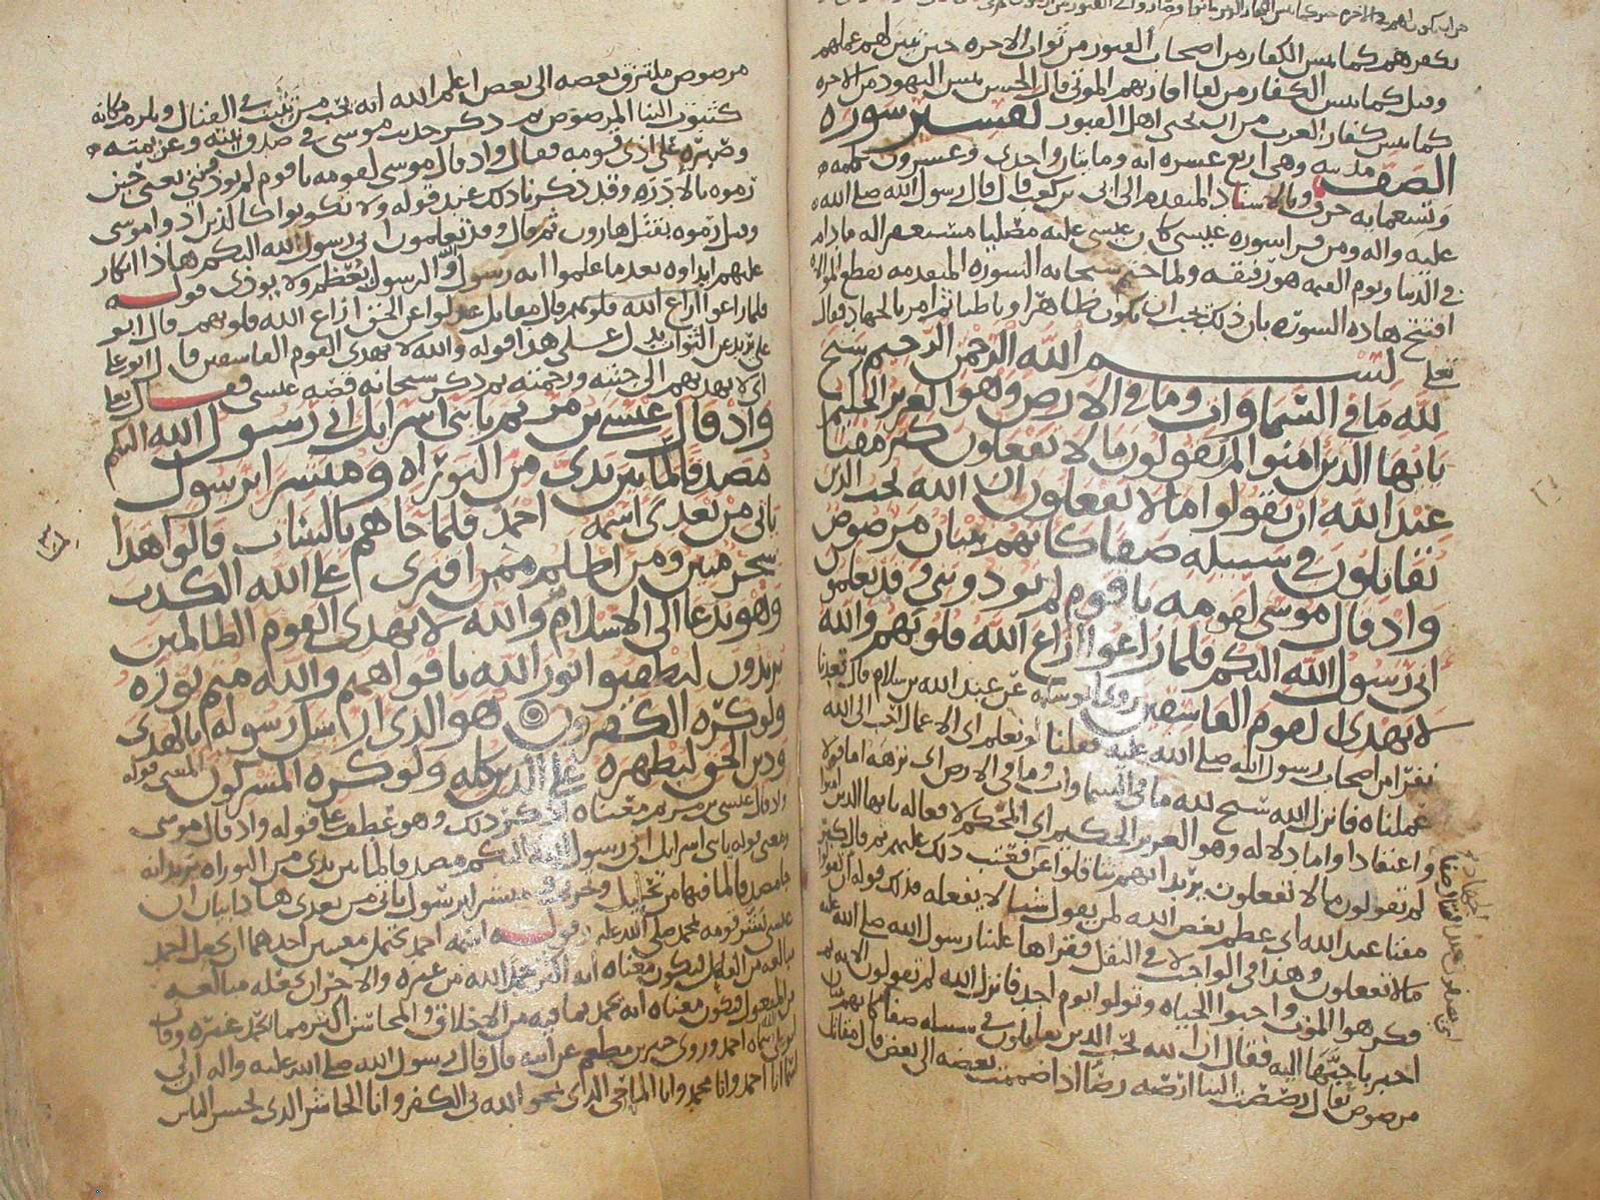 يكفرهم كما يئس الكفار من اصحاب القبور من ثواب الاخره حين تبين لهم عملهم
وقيل كما يئس الكفار من لقا اقاربهم الموتى قال الحسن يئس اليهود من الاخره
كما يئس كفار العرب من ان يحيى اهل القبور تفسير سوره
الصف مدنيه وهى اربع عشره ايه ومايتان واحدى وعشرون كلمه
وتسعمايه حرف وبالاسناد المتقدم الى ابى بن كعب قال قال رسول الله صلى الله
عليه واله ومن قرا سوره عيسى كان عيسى عليه مصليا مستغفرا له ما دام
فى الدنيا ويوم القيمه هو رفيقه ولما ختم سبحانه السوره المتقدمه بقطع الموالاه
افتتح هاذه السوره بان ذلك يجب ان يكون ظاهرا وباطنا ثم امر بالجهاد فقال
تعلى بسم الله الرحمن الرحيم سبح
لله ما فى السماوات وما فى الارض وهو العزيز الحكيم
يايها الذين امنوا لم تقولون ما لا تفعلون كبر مقتا
عند الله ان تقولوا ما لا تفعلون ان الله يحب الذين
يقاتلون فى سبيله صفا كانهم بنيان مرصوص
واذ قال موسى لقومه ياقوم لم تؤذوننى وقد تعلمون
انى رسول الله اليكم فلما زاغوا ازاغ الله قلوبهم والله
لا يهدى القوم الفاسقين روى ابو سلمه عن عبد الله بن سلام قال قعدنا
نفرا من اصحاب رسول الله صلى الله عليه فقلنا لو نعلم اى الاعمال احب الى الله
عملناه فانزل الله سبح لله ما فى السماوات وما فى الارض اى نزهه اما قولا
واعتقادا واما دلاله وهو العزيز الحكيم اى المحكم لافعاله يايها الذين امنوا
لم تقولون ما لا تفعلون
مقتا عند الله اى عظم بغض الله لمن يقول شيا لا يفعله
ما لا تفعلون وهذا فى الواجب لا فى النفل فقراها علينا رسول الله صلى الله عليه
فكرهوا الموت واحبوا الحياه وتولوا يوم احد فانزل الله لم تقولون الايه
اخبر باحبها اليه فقال ان الله يحب الذين يقاتلون فى سبيله صفا كانهم بنيان
مرصوص يقال رصصت البنا ارصه رصا اذا ضممت بعضه الى بعض قال مقاتل
مرصوص ملتزق بعضه الى بعض اعلم الله انه يحب من يثبت فى القتال ويلزم مكانه
كثبوت البنا المرصوص ثم ذكر حديث موسى فى صدق نيته
وصبره على اذى قومه فقال واذ قال موسى لقومه ياقوم لم تؤذوننى يعنى حين
رموه بالادره وقد ذكرنا ذلك عند قوله ولا تكونوا كالذين اذوا موسى
وقيل رموه بقتل هارون ثم قال وقد تعلمون انى رسول الله اليكم هاذا انكار
عليهم ايذاوه بعد ما علموا انه رسول الله والرسول يعظم ولا يوذى قوله
فلما زاغوا ازاغ الله قلوبهم قال مقاتل عدلوا عن الحق ازاغ الله قلوبهم قال ابو
على يريد عن الثواب يدل على هذا قوله والله لا يهدى القوم الفاسقين قال ابو على
اى لا يهديهم الى جنته ورحمته ثم ذكر سبحانه قصه عيسى فقال تعلى
واذ قال عيسى بن مريم يابنى اسرايل انى رسول الله اليكم
مصدقا لما بين يدى من التوراه ومبشرا برسول
ياتى من بعدى اسمه احمد فلما جاهم بالبينات قالوا هذا
سحر مبين ومن اظلم ممن افترى على الله الكذب
وهو يدعا الى الاسلام والله لا يهدى القوم الظالمين
يريدون ليطفئوا نور الله بافواههم والله متم نوره
ولو كره الكفرون هو الذى ارسل رسوله بالهدى
ودين الحق ليظهره على الدين كله ولو كره المشركون المعنى قوله
واذ قال عيسى بن مريم معناه اذكر ذلك وهو عطف على قوله واذ قال موسى
ومعنى قوله يابنى اسرايل انى رسول الله اليكم مصدقا لما بين يدى من التوراه
ومبشرا برسول ياتى من بعدى هاذا بيان ان
عيسى بشر قومه بمحمد صلى الله عليه وقوله اسمه احمد يحتمل معنيين احدهما ان يجعل احمد
مبالغه من الفاعل فيكون معناه انه اكثر حمدا لله من غيره والاخر ان يجعله مبالغه
من المفعول فيكون معناه انه يحمد بما فيه من الاخلاق والمحاسن اكثر مما يحمد غيره
احمد وروى جبير بن مطعم عن ابيه قال قال رسول الله صلى الله عليه واله ان لى
اسما انا احمد وانا محمد وانا الماحى الذى يمحوا الله بى الكفر وانا الحاشر الذى يحشر الناس